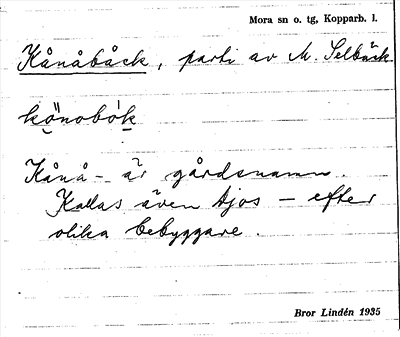 Mora sn o. tg, Kopparb. l.
Kånåbåck, parti av M. Selbäck.
könobók
Kånå- är gårdsnamn.
Kallas även Ajos - efter
olika bebyggare.
Bror Lindén 1935